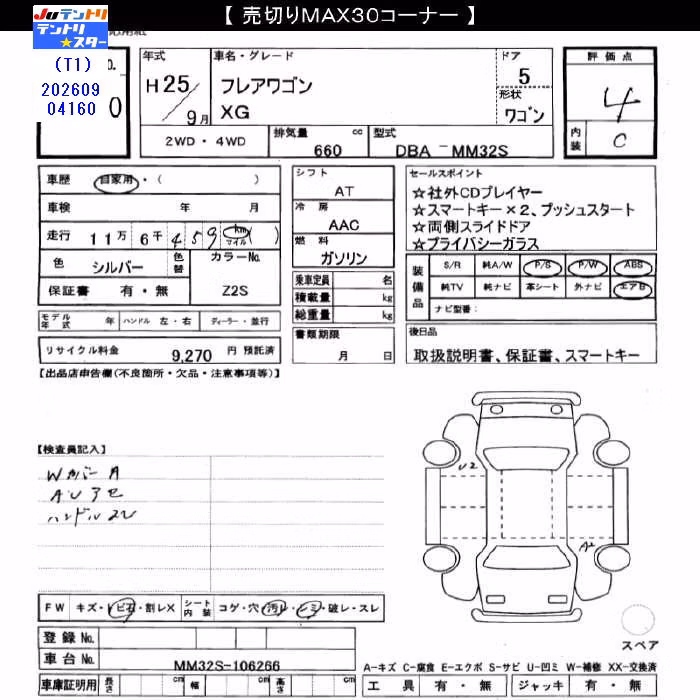 【 売切りMAX30コーナー 】
JUテントリ
テントリ
★スター
(T1)
202609
04160
No.
0
年式
H25/9月
車名・グレード
フレアワゴン
XG
ドア
5
形状
ワゴン
評価点
4
内装
C
2WD・4WD
排気量 cc
660
型式
DBA - MM32S
車歴 自家用・( )
車検 年 月
走行 11万 6千 459 km マイル ( )
色 シルバー 色替 カラーNo.
保証書 有・無 Z2S
モデル年式 年 ハンドル 左・右 ディーラー・並行
リサイクル料金 9,270 円 預託済
シフト
AT
冷房
AAC
燃料
ガソリン
乗車定員 名
積載量 kg
総重量 kg
書類期限
月 日
セールスポイント
☆社外CDプレイヤー
☆スマートキー×2、プッシュスタート
☆両側スライドドア
☆プライバシーガラス
装備品
S/R 純A/W P/S P/W ABS
純TV 純ナビ 革シート 外ナビ エアB
ナビ型番:
後日品
取扱説明書、保証書、スマートキー
【出品店申告欄(不良箇所・欠品・注意事項等)】
【検査員記入】
Wカバー A
ハンドル
U2
A2
FW キズ・ビ石・割レX シート内装 コゲ・穴・汚レ・シミ・破レ・スレ
登録 No.
車台 No. MM32S-106266
車庫証明用 長さ cm 幅 cm 高さ cm
スペア
A-キズ C-腐食 E-エクボ S-サビ U-凹ミ W-補修 XX-交換済
工具 有・無 ジャッキ 有・無